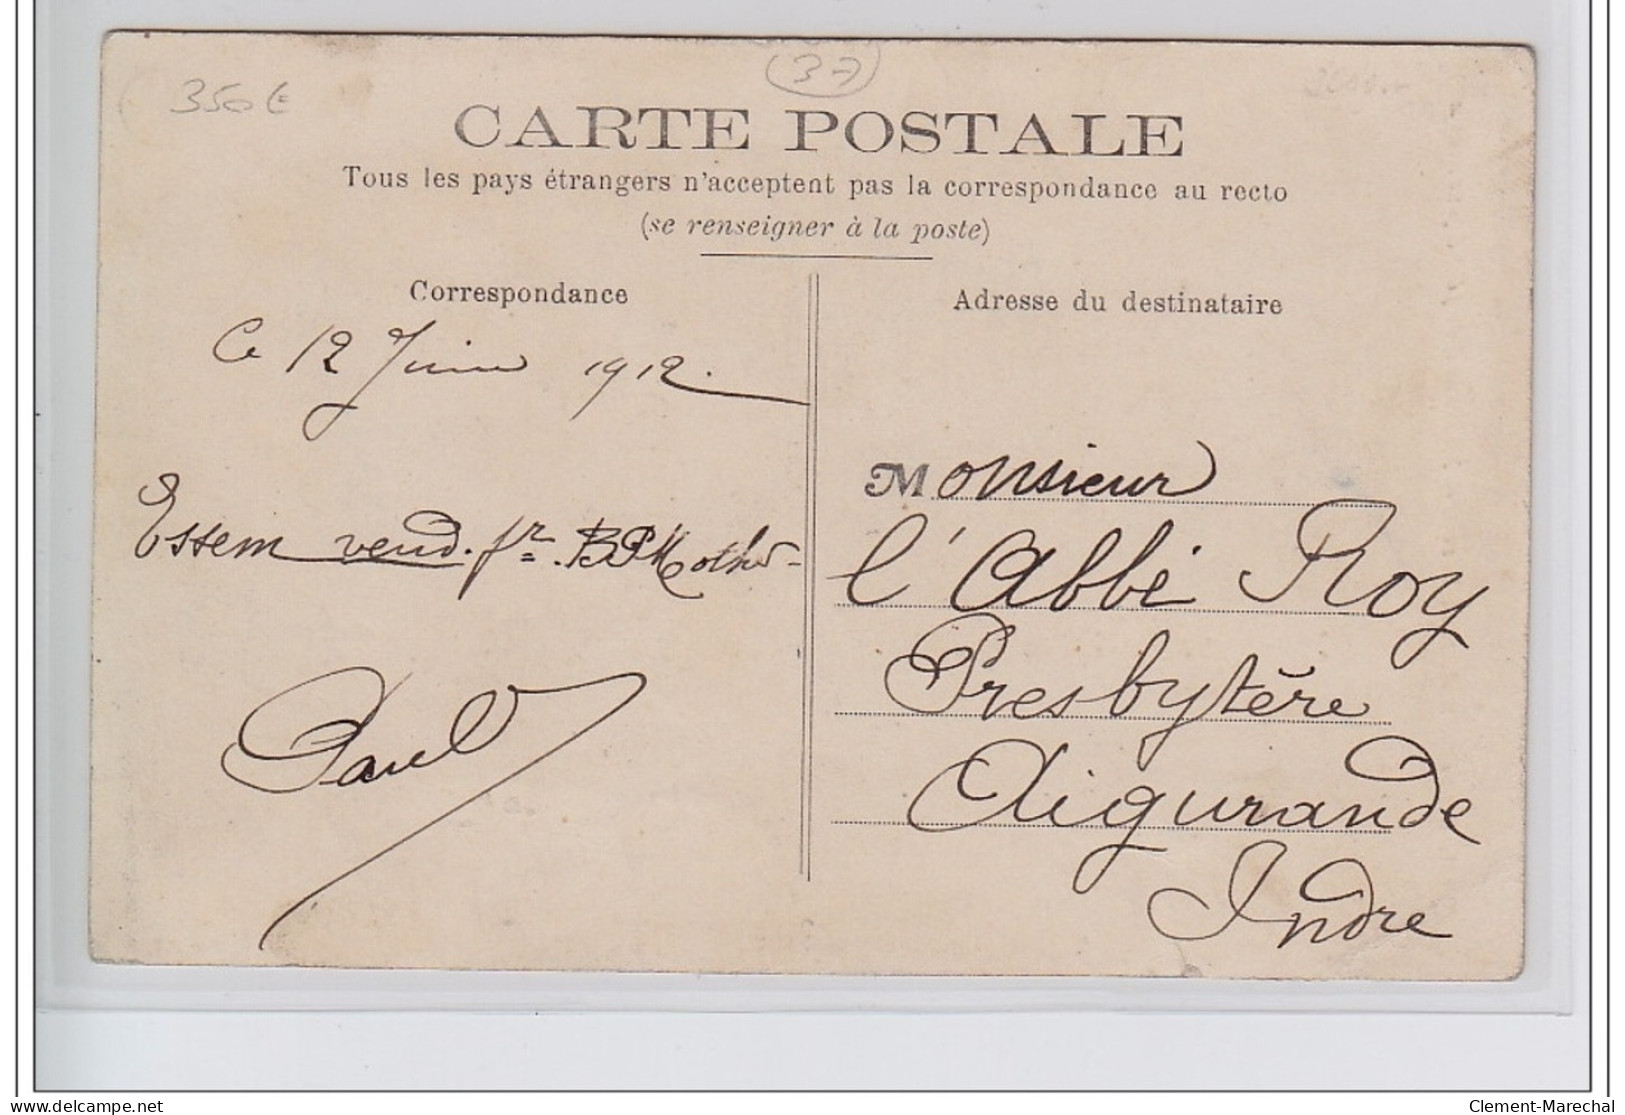 350€
37
CARTE POSTALE
Tous les pays étrangers n'acceptent pas la correspondance au recto
(se renseigner à la poste)
Correspondance
Adresse du destinataire
Ce 12 Juin 1912.
Essem vend. fr.
Paul
Monsieur
l'Abbé Roy
Presbytère
Aigurande
Indre
delcampe.net
Clement-Marechal